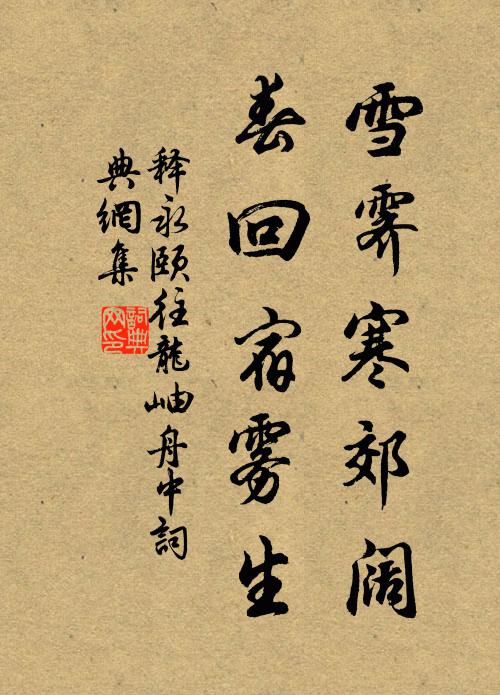 雪霁寒郊阔
春回宿雾生
释永颐往龍岫舟中詞
典網集
詞典
网印